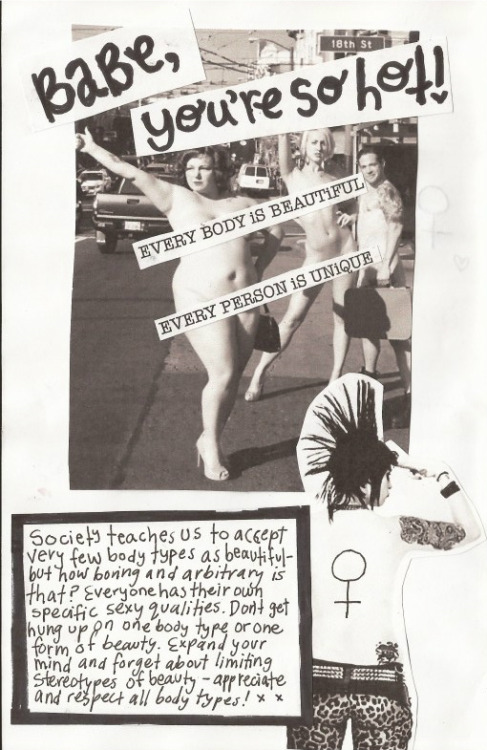 18th St
BaBe,
you're so hot!
EVERY BODY iS BEAUTiFUL
EVERY PERSON iS UNiQUE
Society teaches us to accept
very few body types as beautiful-
but how boring and arbitrary is
that? Everyone has their own
specific sexy qualities. Don't get
hung up on one body type or one
form of beauty. Expand your
mind and forget about limiting
stereotypes of beauty - appreciate
and respect all body types! x x